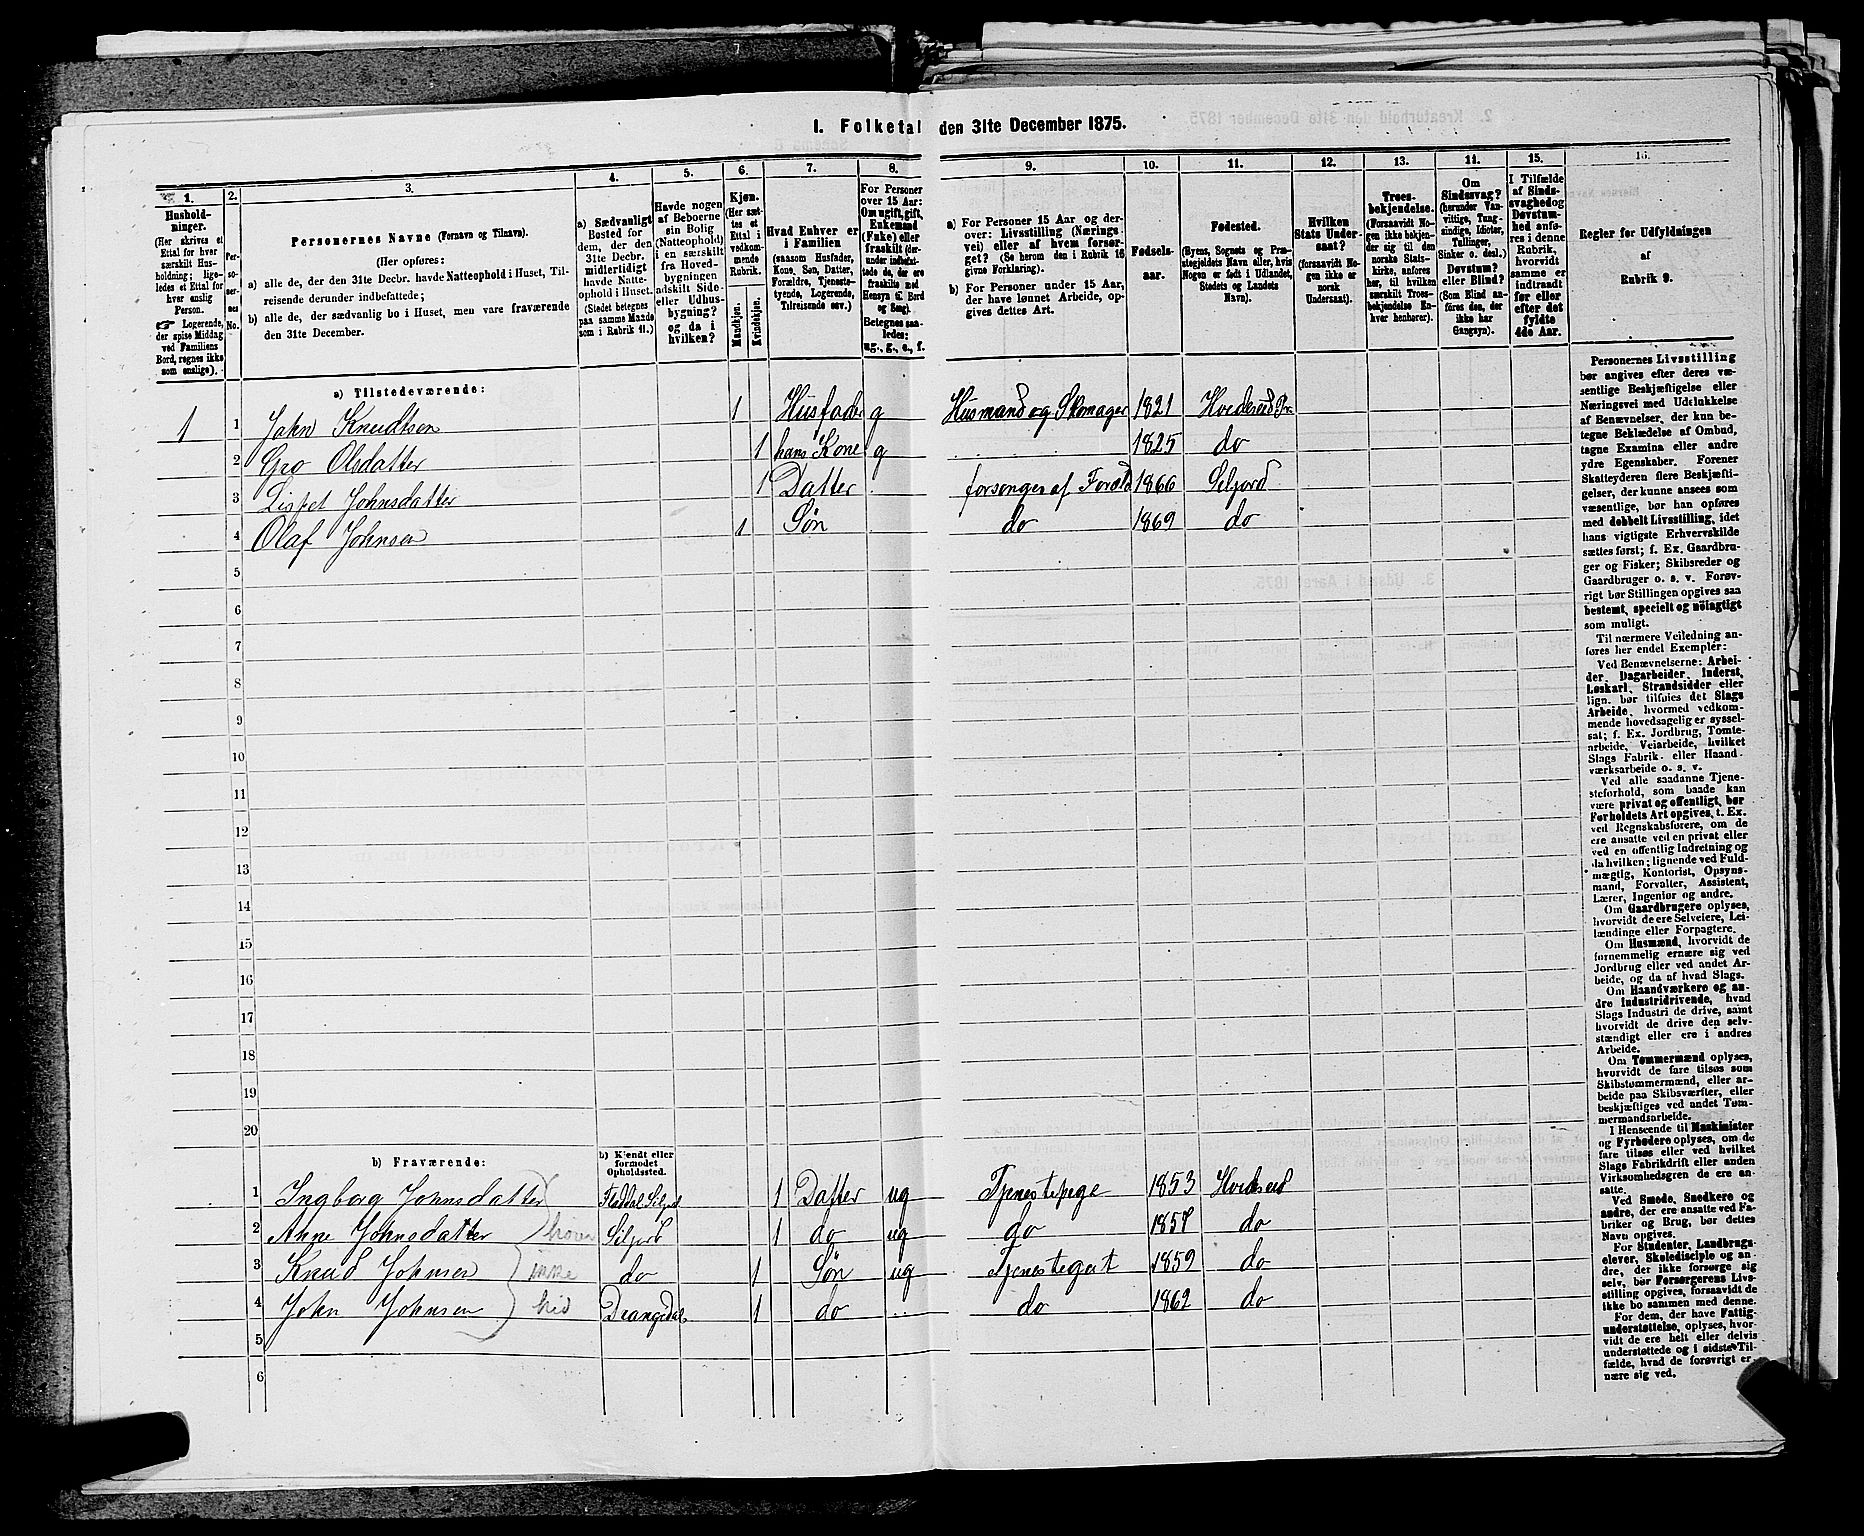 I. Folketal den 31te December 1875.
1.
Hushold-
ninger.
(Her skrives et
Ettal for hver
særskilt Hus-
holdning; lige-
ledes et Ettal for
hver enslig
Person.
☞ Logerende,
der spise Middag
ved Familiens
Bord, regnes ikke
som enslige).
2.
Per-
so-
ner-
nes
No.
3.
Personernes Navne (Fornavn og Tilnavn).
(Her opføres:
a) alle de, der den 31te Decbr. havde Natteophold i Huset, Til-
reisende derunder indbefattede;
b) alle de, der sædvanlig bo i Huset, men vare fraværende
den 31te December.
4.
a) Sædvanligt
Bosted for
dem, der den
31te Decbr.
midlertidigt
havde Natte-
ophold i Huset.
(Stedet betegnes
paa samme Maade
som i Rubrik 11.)
5.
Havde nogen
af Beboerne
sin Bolig
(Natteophold)
i en særskilt
fra Hoved-
bygningen
adskilt Side-
eller Udhus-
bygning?
og da i
hvilken?
6.
Kjøn.
(Her sæt-
tes et
Ettal i
vedkom-
mende
Rubrik.
Mandkjøn.
Kvindekjøn.
7.
Hvad Enhver er
i Familien
(saasom Husfader,
Kone, Søn, Datter,
Forældre, Tjeneste-
tyende, Logerende,
Tilreisende osv.)
8.
For Personer
over 15 Aar:
Om ugift, gift,
Enkemand
(Enke) eller
fraskilt (der-
under indbefat-
tede de, der ere
fraskilte med
Hensyn til Bord
og Seng).
Betegnes saa-
ledes:
ug., g., e., f.
9.
a) For Personer 15 Aar og der-
over: Livsstilling (Nærings-
vei) eller af hvem forsør-
get? (Se herom den i Rubrik 16
givne Forklaring).
b) For Personer under 15 Aar,
der have lønnet Arbeide, op-
gives dettes Art.
10.
Fødsels-
aar.
11.
Fødested.
(Byens, Sognets og Præ-
stegjeldets Navn eller, hvis
Nogen er født i Udlandet,
Stedets og Landets
Navn).
12.
Hvilken
Stats Under-
saat?
(forsaavidt No-
gen ikke er
norsk
Undersaat).
13.
Troes-
bekjendelse.
(Forsaavidt No-
gen ikke bekjen-
der sig til den
norske Stats-
kirke, anføres
her, til hvilken
særskilt Troes-
bekjendelse En-
hver henhører).
14.
Om
Sindssvag?
(herunder Van-
vittige, Tung-
sindige, Idioter,
Tullinger,
Sinker o. desl.)
Døvstum?
eller Blind?
(Som Blind an-
føres den, der
ikke har
Gangsyn).
15.
I Tilfælde
af Sinds-
svaghed og
Døvstum-
hed anfø-
res i denne
Rubrik,
hvorvidt
samme er
indtraadt
før eller
efter det
fyldte
4de Aar.
16.
Regler for Udfyldningen
af
Rubrik 9.
a) Tilstedeværende:
1 1 John Knudtsen 1 Husfader g Husmand og Skomager 1821 Hvideseid Pr.
2 Gro Olsdatter 1 hans Kone g 1825 do
3 Lispet Johnsdatter 1 Datter forsørges af Foræld 1866 Seljord
4 Olaf Johnsen 1 Søn do 1869 do
5
6
7
8
9
10
11
12
13
14
15
16
17
18
19
20
b) Fraværende:
b) Kjendt eller
formodet
Opholdssted.
1 Ingborg Johnsdatter Flatdal Siljord 1 Datter ug Tjenestepige 1853 Hvideseid
2 Anne Johnsdatter Siljord 1 do ug do 1857 do
3 Knud Johnsen do 1 Søn ug Tjenestegut 1859 do
4 John Johnsen Drangedal 1 do do 1862 do
5
6
Personernes Livsstilling
bør angives efter deres væ-
sentlige Beskjæftigelse eller
Næringsvei med Udelukkelse
af Benævnelser, der kun be-
tegne Beklædelse af Ombud,
tagne Examina eller andre
ydre Egenskaber. Forener
Skatteyderen flere Beskjæfti-
gelser, der kunne ansees som
væsentlige, bør han opføres
med dobbelt Livsstilling, idet
hans vigtigste Erhvervskilde
sættes først; f. Ex. Gaardbru-
ger og Fisker; Skibsreder og
Gaardbruger o. s. v. Forøv-
rigt bør Stillingen opgives saa
bestemt, specielt og nöiagtigt
som muligt.
Til nærmere Veiledning an-
føres her endel Exempler:
Ved Benævnelserne: Arbei-
der, Dagarbeider, Inderst,
Løskarl, Strandsidder eller
lign. bør tilføies det Slags
Arbeide, hvormed vedkom-
mende hovedsagelig er syssel-
sat; f. Ex. Jordbrug, Tomte-
arbeide, Veiarbeide, hvilket
Slags Fabrik- eller Haand-
værksarbeide o. s. v.
Ved alle saadanne Tjene-
steforhold, som baade kan
være privat og offentligt, bør
Forholdets Art opgives, t. Ex.
ved Regnskabsførere, om de
ere ansatte ved en privat eller
ved en offentlig Indretning og
da hvilken; lignende ved Fuld-
mægtig, Kontorist, Opsyns-
mand, Forvalter, Assistent,
Lærer, Ingeniør og andre.
Om Gaardbrugere oplyses,
hvorvidt de ere Selveiere, Lei-
lændinge eller Forpagtere.
Om Husmænd, hvorvidt de
fornemmelig ernære sig ved
Jordbrug eller ved andet Ar-
beide, og da af hvad Slags.
Om Haandværkere og an-
dre Industridrivende, hvad
Slags Industri de drive, samt
hvorvidt de drive den selv-
stændigt eller ere i andres
Arbeide.
Om Tømmermænd oplyses,
hvorvidt de fare tilsøs som
Skibstømmermænd, eller ar-
beide paa Skibsværfter, eller
beskjæftiges ved andet Tøm-
mermandsarbeide.
I Henseende til Maskinister
og Fyrbødere oplyses, om de
fare tilsøs eller ved hvilket
Slags Fabrikdrift eller anden
Virksomhedsgren de ere an-
satte.
Ved Smede, Snedkere og
andre, der ere ansatte ved Fa-
briker og Brug, bør dettes
Navn opgives.
For Studenter, Landbrugs-
elever, Skoledisciple og an-
dre, der ikke forsørge sig
selv, bør Forsørgerens Livs-
stilling opgives, forsaavidt de
ikke bo sammen med denne.
For dem, der have Fattig-
understøttelse, oplyses, hvor-
vidt de ere helt eller delvis
understøttede og i sidste Til-
fælde, hvad de forøvrigt er-
nære sig ved.